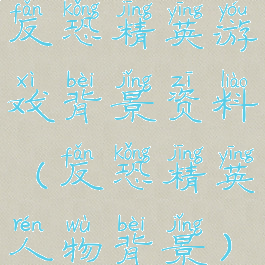 fǎn kǒng jīng yīng yóu
反恐精英游
xì bèi jǐng zī liào
戏背景资料
fǎn kǒng jīng yīng
（反恐精英
rén wù bèi jǐng
人物背景）